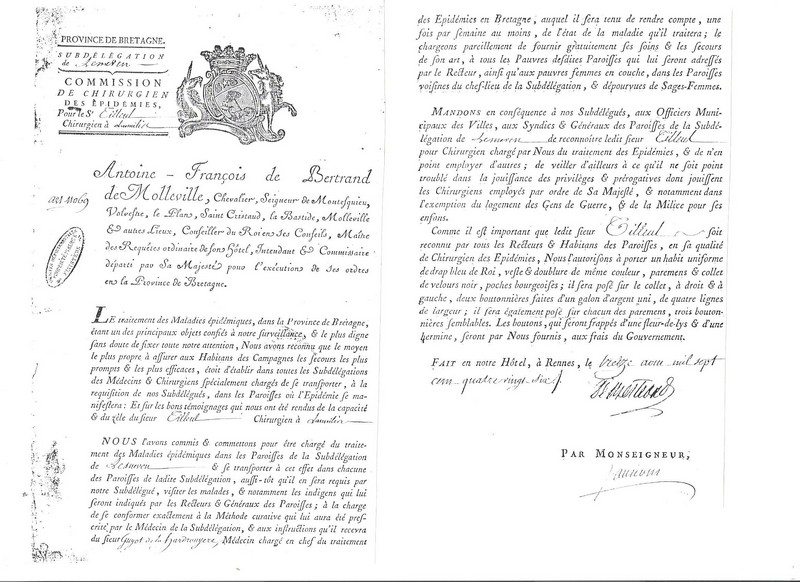 PROVINCE DE BRETAGNE.
SUBDÉLÉGATION
de Lesneven
COMMISSION
DE CHIRURGIEN
DES ÉPIDÉMIES,
Pour le Sr Tilleul
Chirurgien à
Antoine-François de Bertrand
de Molleville, Chevalier, Seigneur de Montesquieu,
Volvestre, le Plan, Saint Cristaud, la Bastide, Molleville
& autres Lieux, Conseiller du Roi en ses Conseils, Maître
des Requêtes ordinaire de son Hôtel, Intendant & Commissaire
départi par Sa Majesté pour l'exécution de ses ordres
en la Province de Bretagne.
LE traitement des Maladies épidémiques, dans la Province de Bretagne,
étant un des principaux objets confiés à notre surveillance, & le plus digne
sans doute de fixer toute notre attention, Nous avons reconnu que le moyen
le plus propre à assurer aux Habitans des Campagnes les secours les plus
prompts & les plus efficaces, étoit d'établir dans toutes les Subdélégations
des Médecins & Chirurgiens spécialement chargés de se transporter, à la
requisition de nos Subdélégués, dans les Paroisses où l'Epidémie se ma-
nifestera : Et sur les bons témoignages qui nous ont été rendus de la capacité
& du zèle du sieur Tilleul Chirurgien à
NOUS l'avons commis & commettons pour être chargé du traite-
ment des Maladies épidémiques dans les Paroisses de la Subdélégation
de Lesneven & se transporter à cet effet dans chacune
des Paroisses de ladite Subdélégation, aussi-tôt qu'il en sera requis par
notre Subdélégué, visiter les malades, & notamment les indigens qui lui
seront indiqués par les Recteurs & Généraux des Paroisses ; à la charge
de se conformer exactement à la Méthode curative qui lui aura été pres-
crite par le Médecin de la Subdélégation, & aux instructions qu'il recevra
du sieur Guyot de la Hardrouyere, Médecin chargé en chef du traitement
des Epidémies en Bretagne, auquel il sera tenu de rendre compte, une
fois par semaine au moins, de l'état de la maladie qu'il traitera ; le
chargeons pareillement de fournir gratuitement ses soins & les secours
de son art, à tous les Pauvres desdites Paroisses qui lui seront adressés
par le Recteur, ainsi qu'aux pauvres femmes en couche, dans les Paroisses
voisines du chef-lieu de la Subdélégation, & dépourvues de Sages-Femmes.
MANDONS en conséquence à nos Subdélégués, aux Officiers Muni-
cipaux des Villes, aux Syndics & Généraux des Paroisses de la Subdé-
légation de Lesneven de reconnoître ledit sieur Tilleul
pour Chirurgien chargé par Nous du traitement des Epidémies, & de n'en
point employer d'autres ; de veiller d'ailleurs à ce qu'il ne soit point
troublé dans la jouissance des privilèges & prérogatives dont jouissent
les Chirurgiens employés par ordre de Sa Majesté, & notamment dans
l'exemption du logement des Gens de Guerre, & de la Milice pour ses
enfans.
Comme il est important que ledit sieur Tilleul soit
reconnu par tous les Recteurs & Habitans des Paroisses, en sa qualité
de Chirurgien des Epidémies, Nous l'autorisons à porter un habit uniforme
de drap bleu de Roi, veste & doublure de même couleur, paremens & collet
de velours noir, poches bourgeoises ; il sera posé sur le collet, à droit & à
gauche, deux boutonnières faites d'un galon d'argent uni, de quatre lignes
de largeur ; il sera également posé sur chacun des paremens, trois bouton-
nières semblables. Les boutons, qui seront frappés d'une fleur-de-lys & d'une
hermine, seront par Nous fournis, aux frais du Gouvernement.
FAIT en notre Hôtel, à Rennes, le treize aout mil sept
cent quatre vingt
PAR MONSEIGNEUR,